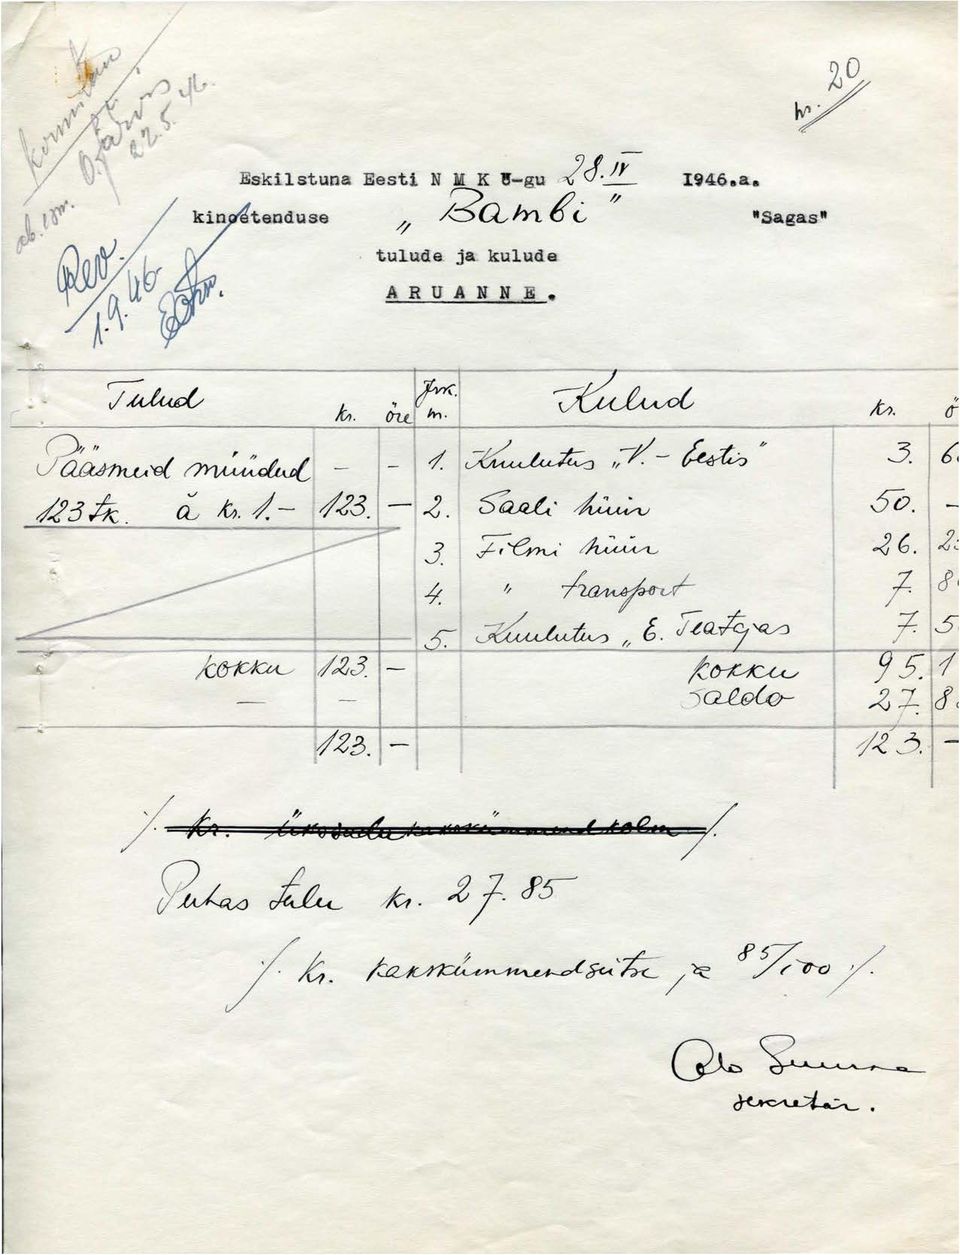 nr. 20
O. Järvis
22.5.46.
Eskilstuna Eesti N M K Ü-gu 28.IV 1946.a.
kinoetenduse „Bambi" "Sagas"
tulude ja kulude
ARUANNE.
Rev.
1.9.46
Tulud kr. öre Jrk. m. Kulud kr. ö
Pääsmeid müüdud - - 1. Kuulutus „V.-Eestis" 3. 6
123 tk. à kr. 1.- 123. - 2. Saali hüür 50. -
3. Filmi hüür 26. 2
4. " transport 7. 8
5. Kuulutus „E. Teatajas 7. 5
kokku 123. - kokku 95. 1
— — saldo 27. 8
123. - 123. -
/. Kr. Ükssada kakskümmend kolm /.
Puhas tulu kr. 27.85
/. Kr. kakskümmendseitse ja 85/100 /.
sekretär.